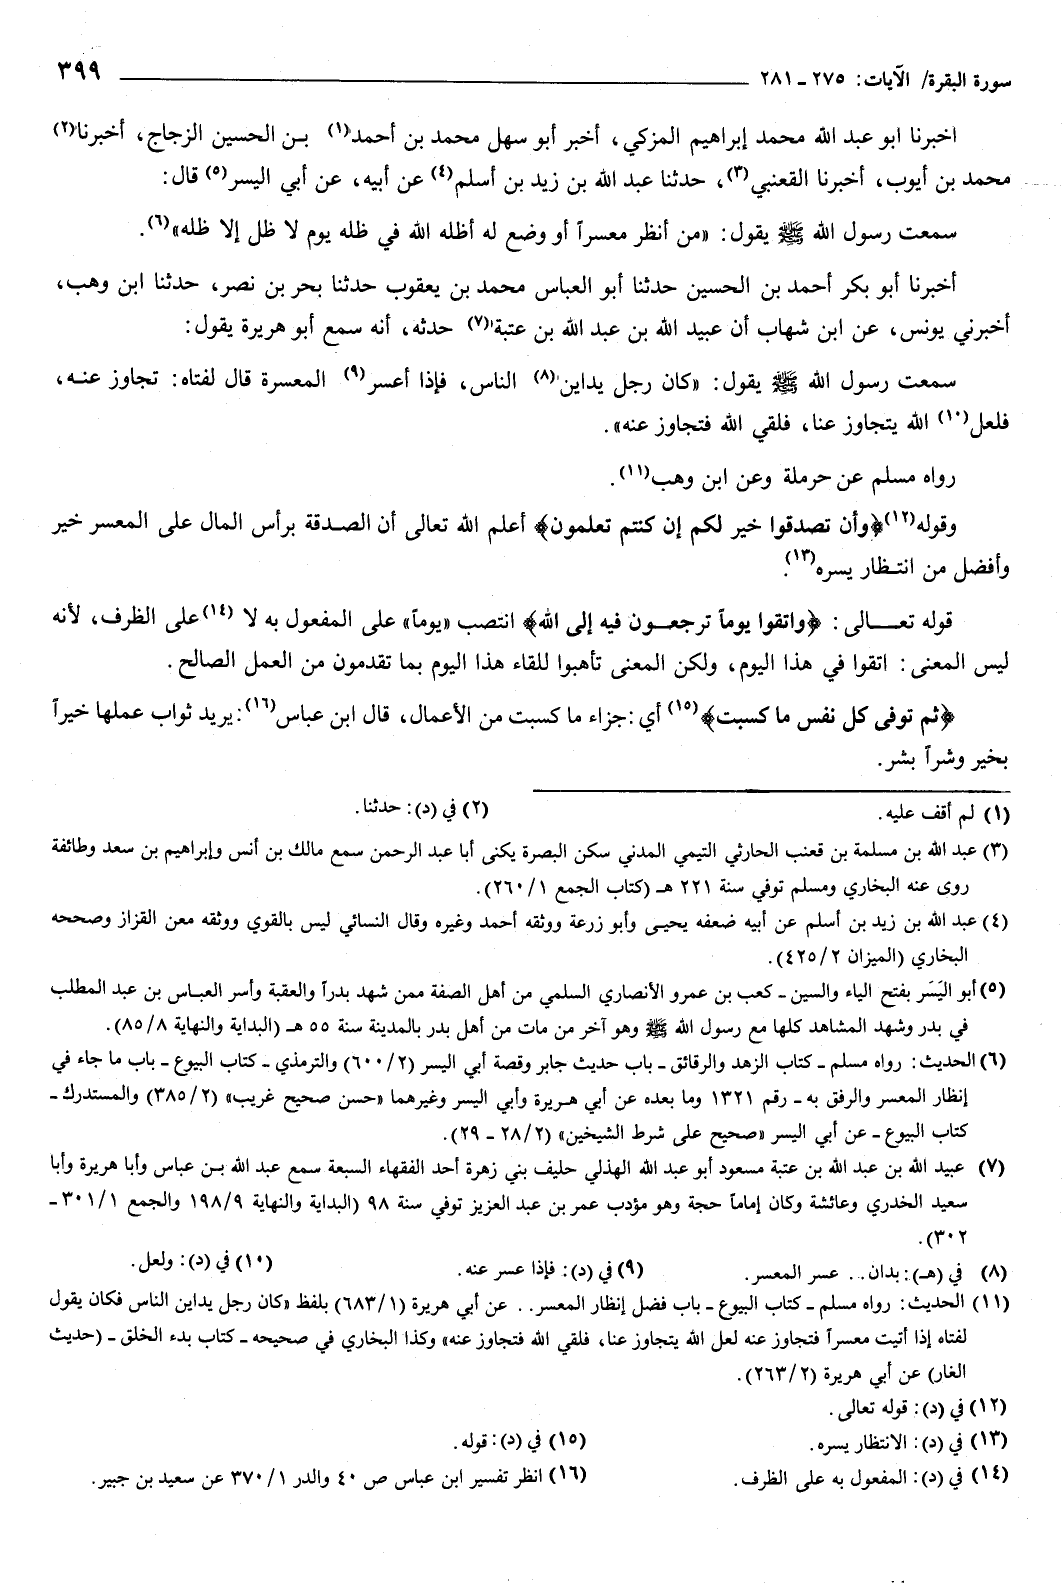 سورة البقرة/ الآيات: ٢٧٥ ـ ٢٨١ ٣٩٩
اخبرنا ابو عبد الله محمد إبراهيم المزكي، أخبر أبو سهل محمد بن أحمد(١) بـن الحسين الزجاج، أخبرنا(٢)
محمد بن أيوب، أخبرنا القعنبي(٣)، حدثنا عبد الله بن زيد بن أسلم(٤) عن أبيه، عن أبي اليسر(٥) قال:
سمعت رسول الله ﷺ يقول: «من أنظر معسراً أو وضع له أظله الله في ظله يوم لا ظل إلا ظله»(٦).
أخبرنا أبو بكر أحمد بن الحسين حدثنا أبو العباس محمد بن يعقوب حدثنا بحر بن نصر، حدثنا ابن وهب،
أخبرني يونس، عن ابن شهاب أن عبيد الله بن عبد الله بن عتبة(٧) حدثه، أنه سمع أبو هريرة يقول:
سمعت رسول الله ﷺ يقول: «كان رجل يداين(٨) الناس، فإذا أعسر(٩) المعسرة قال لفتاه: تجاوز عنـه،
فلعل(١٠) الله يتجاوز عنا، فلقي الله فتجاوز عنه».
رواه مسلم عن حرملة وعن ابن وهب(١١).
وقوله(١٢) ﴿وأن تصدقوا خير لكم إن كنتم تعلمون﴾ أعلم الله تعالى أن الصـدقة برأس المال على المعسر خير
وأفضل من انتـظار يسره(١٣).
قوله تعـــالى: ﴿واتقوا يوماً ترجعـون فيه إلى الله﴾ انتصب «يوماً» على المفعول به لا (١٤)على الظرف، لأنه
ليس المعنى: اتقوا في هذا اليوم، ولكن المعنى تأهبوا للقاء هذا اليوم بما تقدمون من العمل الصالح.
﴿ثم توفى كل نفس ما كسبت﴾(١٥) أي: جزاء ما كسبت من الأعمال، قال ابن عباس(١٦): يريد ثواب عملها خيراً
بخير وشراً بشر.
(١) لم أقف عليه. (٢) في (د): حدثنا.
(٣) عبد الله بن مسلمة بن قعنب الحارثي التيمي المدني سكن البصرة يكنى أبا عبد الرحمن سمع مالك بن أنس وإبراهيم بن سعد وطائفة
روى عنه البخاري ومسلم توفي سنة ٢٢١ هـ (كتاب الجمع ٢٦٠/١).
(٤) عبد الله بن زيد بن أسلم عن أبيه ضعفه يحيـى وأبو زرعة ووثقه أحمد وغيره وقال النسائي ليس بالقوي ووثقه معن القزاز وصححه
البخاري (الميزان ٤٢٥/٢).
(٥) أبو اليَسَر بفتح الياء والسين ـ كعب بن عمرو الأنصاري السلمي من أهل الصفة ممن شهد بدراً والعقبة وأسر العبـاس بن عبد المطلب
في بدر وشهد المشاهد كلها مع رسول الله ﷺ وهو آخر من مات من أهل بدر بالمدينة سنة ٥٥ هـ (البداية والنهاية ٨٥/٨).
(٦) الحديث: رواه مسلم ـ كتاب الزهد والرقائق ـ باب حديث جابر وقصة أبي اليسر (٦٠٠/٢) والترمذي ـ كتاب البيوع ـ باب ما جاء في
إنظار المعسر والرفق به ـ رقم ١٣٢١ وما بعده عن أبي هـريرة وأبي اليسر وغيرهما «حسن صحيح غريب» (٣٨٥/٢) والمستدرك ـ
كتاب البيوع ـ عن أبي اليسر «صحيح على شرط الشيخين» (٢٨/٢ ـ ٢٩).
(٧) عبيد الله بن عبد الله بن عتبة مسعود أبو عبد الله الهذلي حليف بني زهرة أحد الفقهاء السبعة سمع عبد الله بـن عباس وأبا هريرة وأبا
سعيد الخدري وعائشة وكان إماماً حجة وهو مؤدب عمر بن عبد العزيز توفي سنة ٩٨ (البداية والنهاية ١٩٨/٩ والجمع ٣٠١/١ ـ
٣٠٢).
(٨) في (هـ): بدان.. عسر المعسر. (٩) في (د): فإذا عسر عنه. (١٠) في (د): ولعل.
(١١) الحديث: رواه مسلم ـ كتاب البيوع ـ باب فضل إنظار المعسر.. عن أبي هريرة (٦٨٣/١) بلفظ «كان رجل يداين الناس فكان يقول
لفتاه إذا أتيت معسراً فتجاوز عنه لعل الله يتجاوز عنا، فلقي الله فتجاوز عنه» وكذا البخاري في صحيحه ـ كتاب بدء الخلق ـ (حديث
الغار) عن أبي هريرة (٢٦٣/٢).
(١٢) في (د): قوله تعالى.
(١٣) في (د): الانتظار يسره. (١٥) في (د): قوله.
(١٤) في (د): المفعول به على الظرف. (١٦) انظر تفسير ابن عباس ص ٤٠ والدر ٣٧٠/١ عن سعيد بن جبير.